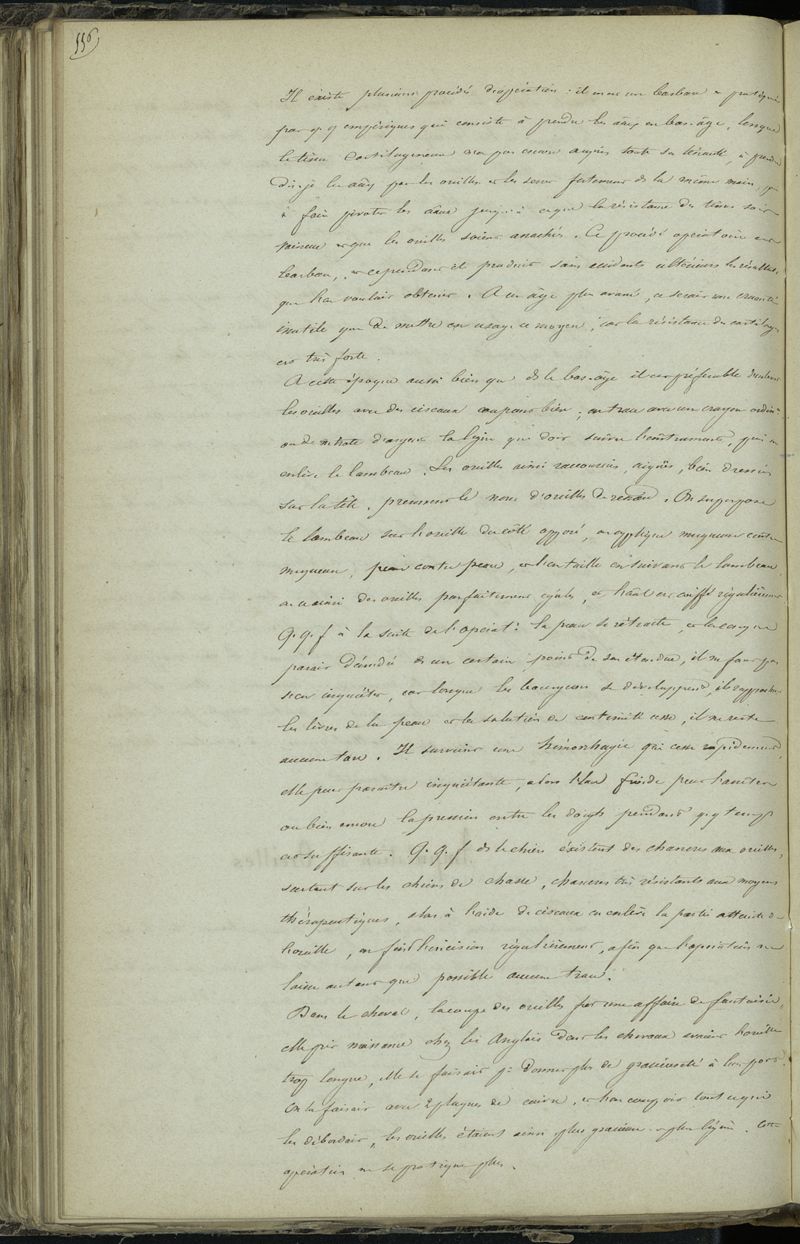 556
Il existe plusieurs procédés d'opération : il en est un barbare & pratiqué
par q.q. empiriques qui consiste à prendre les anx en bas-âge, lorsque
le tissu cartilagineux n'a pas encore acquis toute sa ténacité, à prendre
dis-je les anx par les oreilles et les serrer fortement de la même main,
à faire pivoter les anx jusqu'à ce que la résistance des tissus soit
vaincue et que les oreilles soient arrachées. Ce procédé opératoire est
barbare, et cependant il produit sans accidents ultérieurs les résultats
que l'on voulait obtenir. A un âge plus avancé, ce serait une cruauté
inutile que de mettre en usage ce moyen, car la résistance du cartilage
est très forte.
A cette époque aussi bien que ds le bas-âge il est préférable d'enlever
les oreilles avec des ciseaux coupant bien ; on trace avec un crayon
ou de nitrate d'argent la ligne que doit suivre l'instrument, puis on
enlève le lambeau. Les oreilles ainsi raccourcies, aiguës, bien dressées
sur la tête, prennent le nom d'oreilles de renard. On superpose
le lambeau sur l'oreille du côté opposé, on applique muqueuse contre
muqueuse, peau contre peau, et l'on taille en suivant le lambeau
on a ainsi des oreilles parfaitement égales, et l'anl est coiffé régulièrement
Q.q.f à la suite de l'opérat: la peau se rétracte, et la conque
paraît dénudée ds un certain point de son étendue, il ne faut pas
s'en inquiéter, car lorsque les bourgeons se développent, ils rapprochent
les lèvres de la peau et la solution de continuité cesse, il ne reste
aucune tare. Il survient une hémorrhagie qui cesse rapidement,
elle peut paraître inquiétante, alors l'eau froide peut l'arrêter
ou bien encore la pression entre les doigts pendant q.q. temps
est suffisante. Q.q.f ds le chien existent des chancres aux oreilles,
surtout sur les chiens de chasse, chancres très résistants aux moyens
thérapeutiques, alors à l'aide de ciseaux on enlève la partie atteinte de
l'oreille, on fait l'incision régulièrement, afin que l'opération ne
laisse autant que possible aucune trace.
Dans le cheval, la coupe des oreilles fut une affaire de fantaisie,
elle prit naissance chez les Anglais dont les chevaux avaient l'oreille
trop longue, elle se faisait pr donner plus de gracieuseté à leur port
On la faisait avec 2 plaques de cuivre, et l'on coupait tout ce qui
les débordait, les oreilles étaient ainsi plus gracieuses et plus légères. Cette
opération ne se pratique plus.